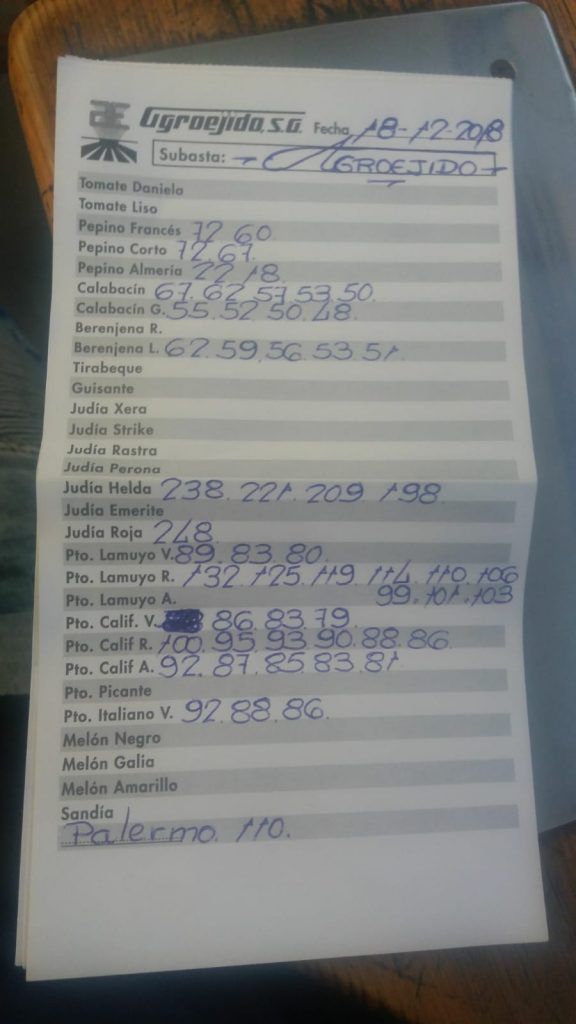 Agroejido, S.A. Fecha 18-12-2018
Subasta: - AGROEJIDO -
Tomate Daniela
Tomate Liso
Pepino Francés 72 60
Pepino Corto 72.67.
Pepino Almeria 22 18.
Calabacín 67. 62 57 53 50.
Calabacín G. 55. 52 50. 48.
Berenjena R.
Berenjena L. 62. 59. 56. 53. 51.
Tirabeque
Guisante
Judía Xera
Judía Strike
Judía Rastra
Judía Perona
Judía Helda 238. 221. 209 198.
Judía Emerite
Judía Roja 248.
Pto. Lamuyo V. 89. 83. 80.
Pto. Lamuyo R. 132. 125. 119. 114. 110. 106
Pto. Lamuyo A. 99. 101. 103
Pto. Calif. V. 86. 83. 79
Pto. Calif R. 100. 95. 93. 90. 88. 86.
Pto. Calif A. 92. 87. 85. 83. 81
Pto. Picante
Pto. Italiano V. 92. 88. 86.
Melón Negro
Melón Galia
Melón Amarillo
Sandía
Palermo. 110.